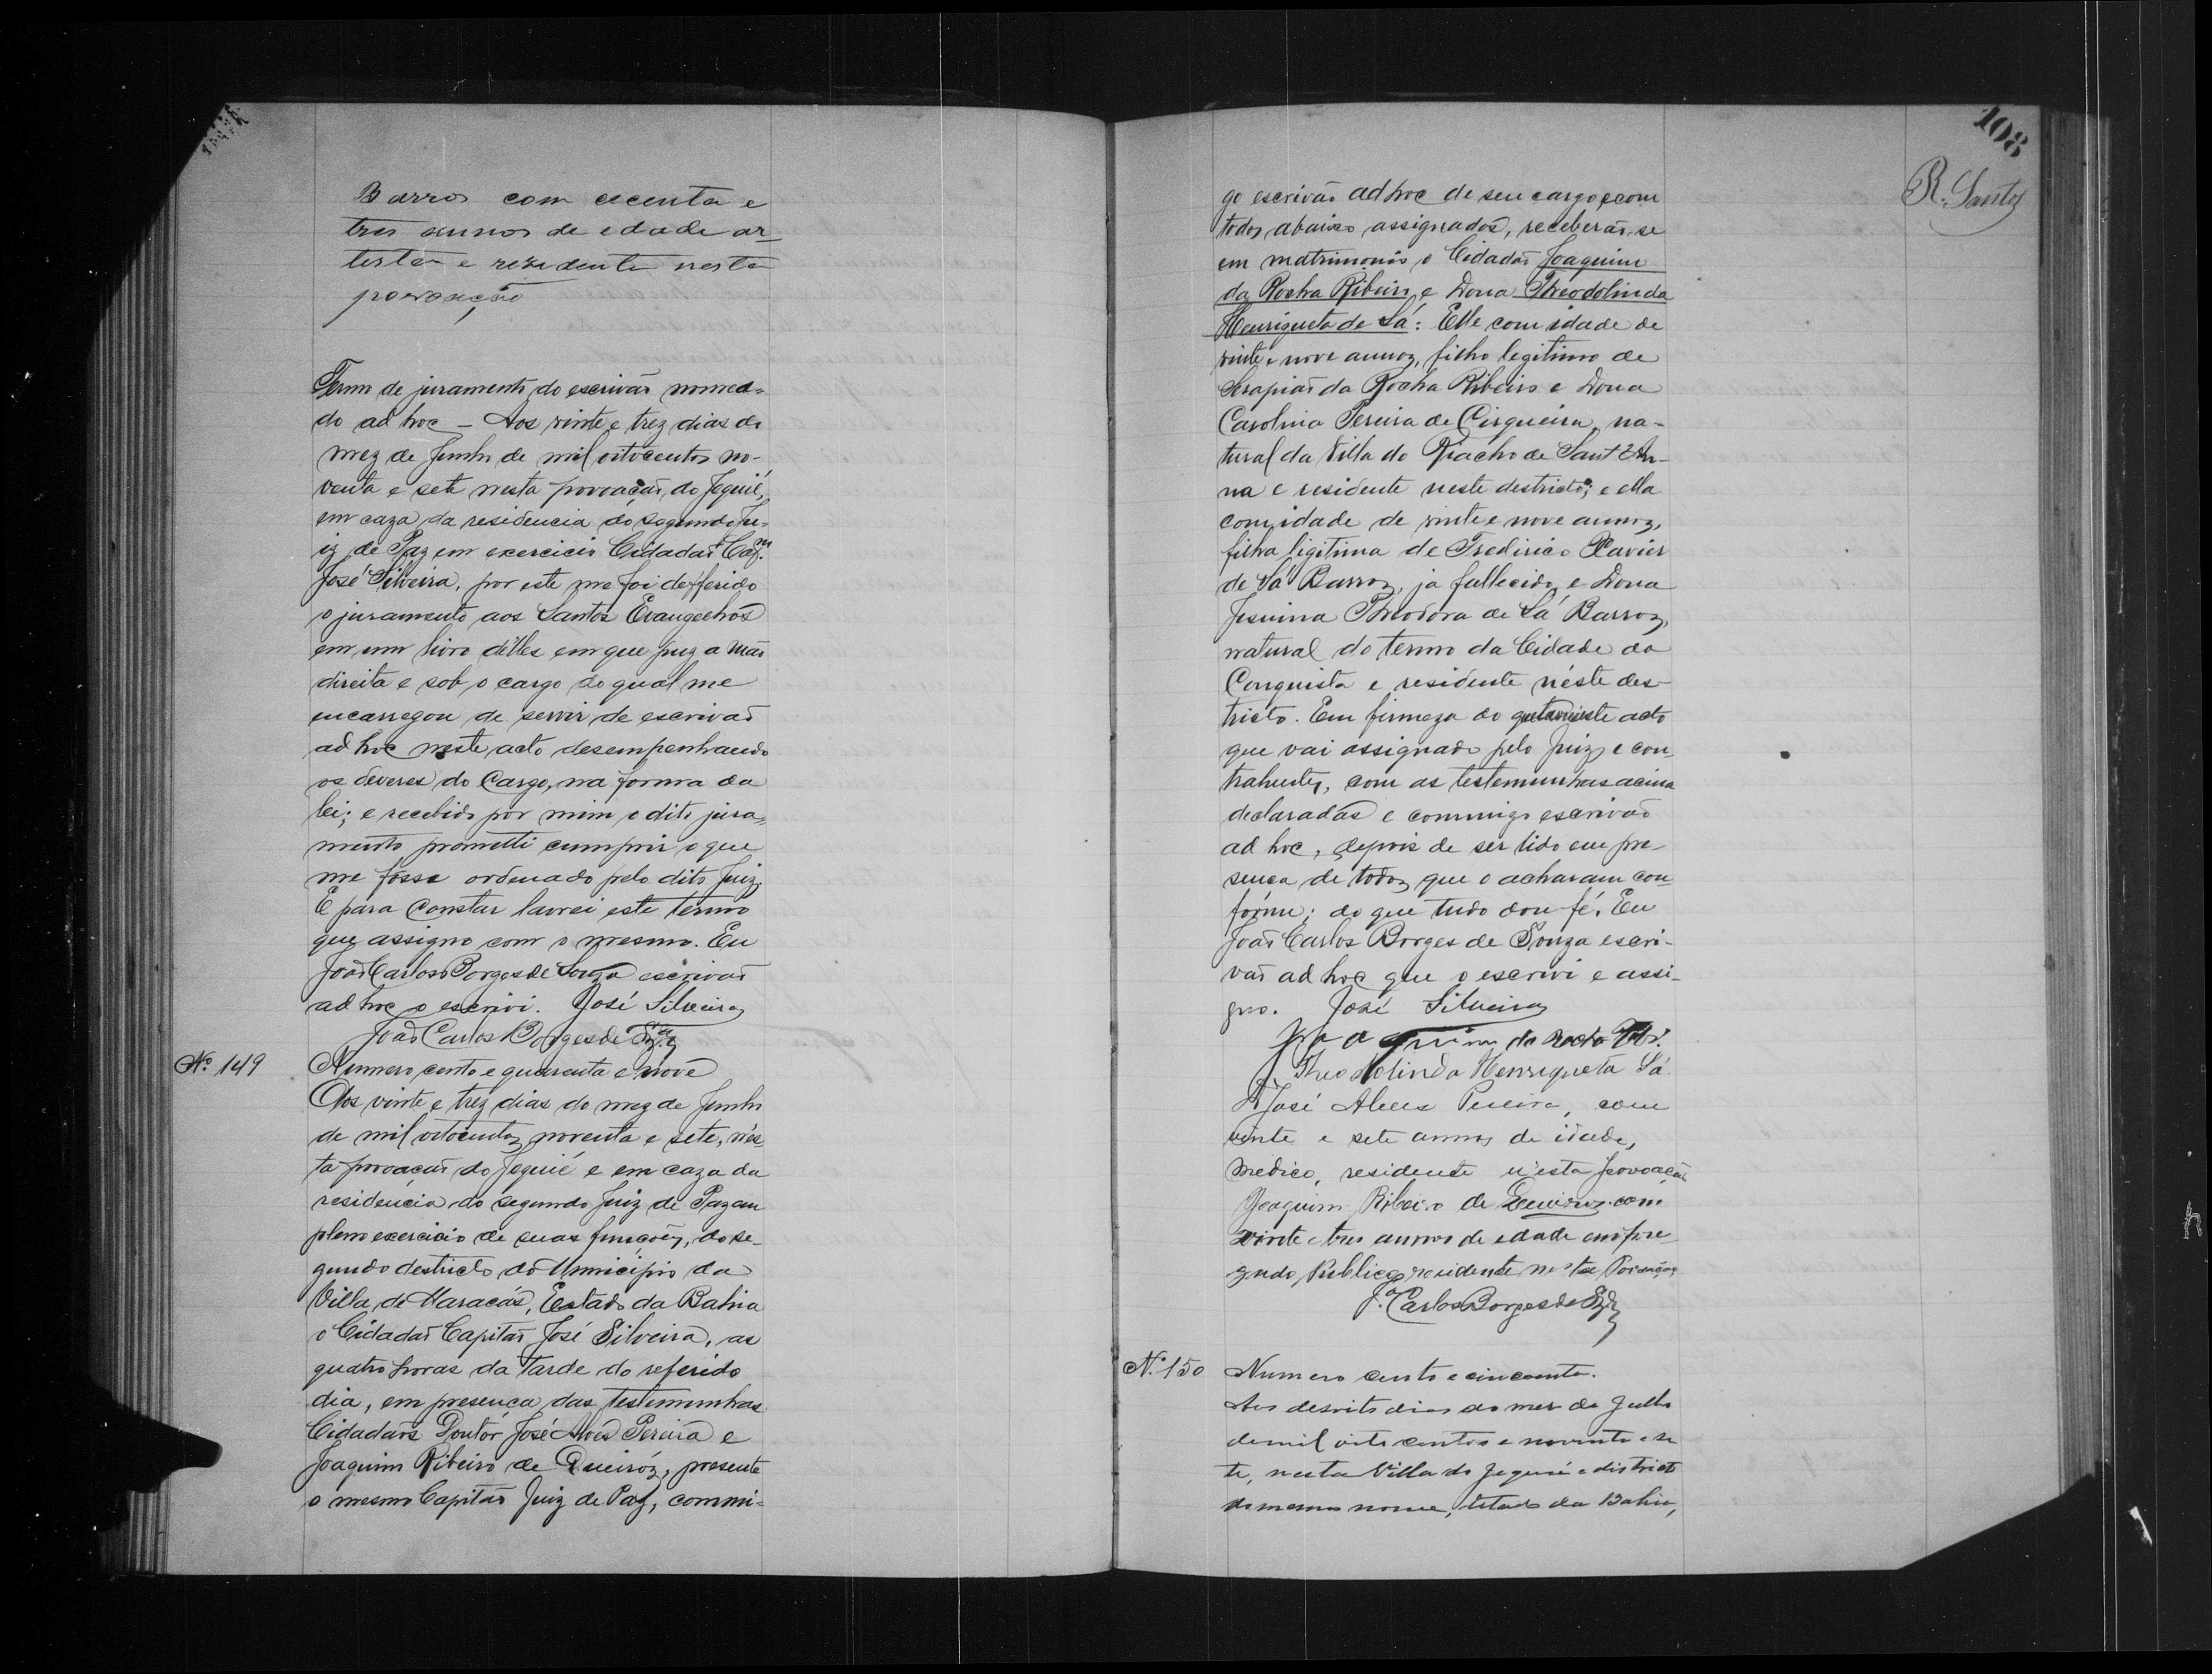 Barros com cecenta e
tres annos de edade ar-
tista e rezidente nesta
povoação
Termo de juramento do escrivão nomea-
do ad hoc – Aos vinte e trez dias do
mez de Junho de mil oitocentos no-
venta e sete nesta povoação do Jequié,
em caza da residencia do segundo Ju-
iz de Paz em exercicio Cidadão Capm
José Silveira, por este me foi defferido
o juramento aos Santos Evangelhos
em um livro délles em que puz a mão
direita e sob o cargo do qual me
encarregou de servir de escrivão
ad hoc neste acto desempenhando
os deveres do Cargo, na forma da
lei; e recebido por mim o dito jura-
mento prometti cumprir o que
me fosse ordenado pelo dito Juiz.
E para constar lavrei este termo
que assigno com o mesmo. Eu
João Carlos Borges de Souza escrivão
ad hoc o escrivi. José Silveira
João Carlos Borges de Sza
Nº 149
Numero cento e quarenta e nove
Aos vinte e trez dias do mez de Junho
de mil oitocentos noventa e sete, n'es-
ta povoação do Jequié e em caza da
residencia do segundo Juiz de Paz em
pleno exercicio de suas funcções, do se-
gundo destricto do Municipio da
Villa de Maracás, Estado da Bahia
o Cidadão Capitão José Silveira, as
quatro horas da tarde do referido
dia, em presença das testemunhas
Cidadãos Doutor José Alves Pereira e
Joaquim Ribeiro de Queiróz, presente
o mesmo Capitão Juiz de Paz, commi-
108
R. Santos
go escrivão ad hoc de seu cargo e com
todos abaixo assignados, receberão-se
em matrimonio o Cidadão Joaquim
da Rocha Ribeiro e Dona Threodolinda
Henriqueta de Sá: Elle com idade de
vinte e nove annoz, filho legitimo de
Serapião da Rocha Ribeiro e Dona
Carolina Pereira de Cirqueira, na-
tural da Villa do Riacho de Sant'An-
na e residente neste destricto; e ella
com idade de vinte e nove annoz,
filha ligitima de Frederico Xavier
de Sá Barros, ja fallecido, e Dona
Jesuina Theodora de Sá Barroz,
natural do termo da Cidade da
Conquista e residente néste des-
tricto. Em firmeza do que lavrei este acto
que vai assignado pelo Juiz e con-
trahentes, com as testemunhas acima
declaradas e commigo escrivão
ad hoc, depois de ser lido em pre-
sença de todos que o acharam con-
forme; do que tudo dou fé. Eu
João Carlos Borges de Souza escri-
vão ad hoc que o escrivi e assi-
gno. José Silveira
Joaquim da Rocha
Theodolinda Henriqueta Sá
Dr José Alves Pereira, com
vinte e sete annos de idade,
medico, residente n'esta povoação
Joaquim Ribeiro de Queiroz com
vinte e tres annos de edade empre
gado Publico residente nesta Povoação
Jo Carlos Borges de Sza
N. 150
Numero cento e cincoenta.
Aos desoito dias do mes de Julho
de mil oito centos e noventa e se
te, nesta Villa do Jequié e districto
do mesmo nome, Estado da Bahia,